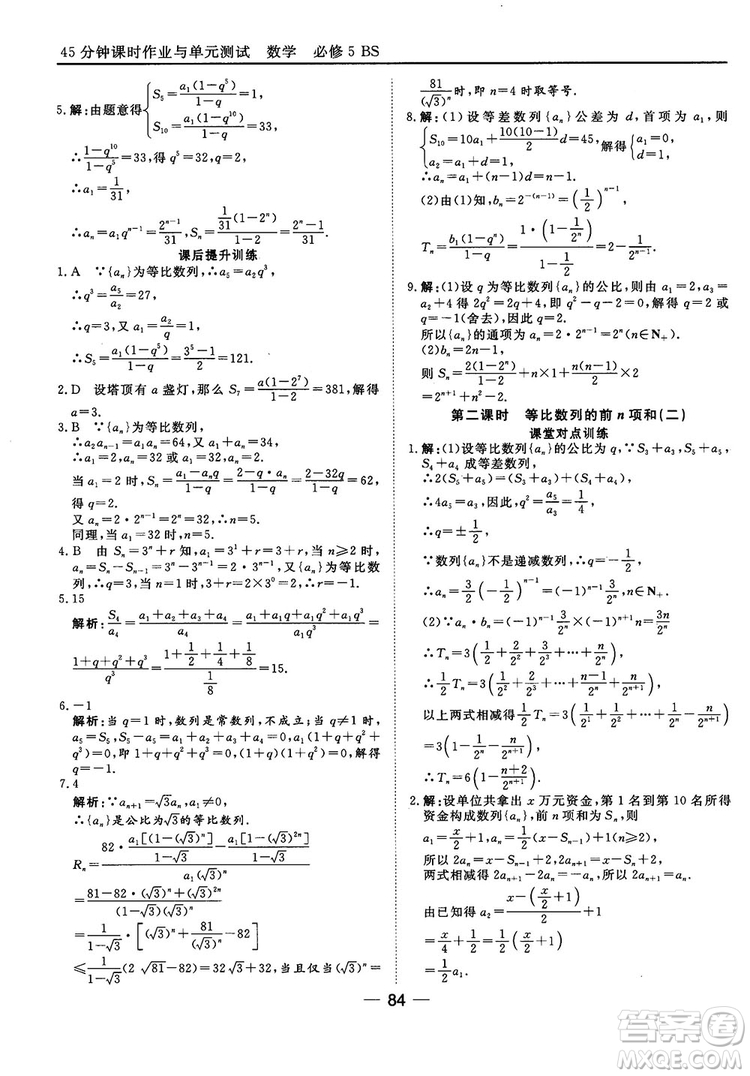 45分钟课时作业与单元测试 数学 必修5 BS
5.解:由题意得{S₅=a₁(1-q⁵)/(1-q)=1, S₁₀=a₁(1-q¹⁰)/(1-q)=33,
∴(1-q¹⁰)/(1-q⁵)=33,∴q=2,
∴a₁=1/31,
∴aₙ=a₁qⁿ⁻¹=2ⁿ⁻¹/31,Sₙ=(1/31)(1-2ⁿ)/(1-2)=(2ⁿ-1)/31.
课后提升训练
1.A ∵{aₙ}为等比数列,∴a₅=a₂q³,
∴q³=a₅/a₂=27,
∴q=3,又a₁=a₂/q=1,
∴S₅=a₁(1-q⁵)/(1-q)=(3⁵-1)/2=121.
2.D 设塔顶有a盏灯,那么S₇=a(1-2⁷)/(1-2)=381,解得
a=3.
3.B ∵{aₙ}为等比数列,
∴a₂aₙ₋₁=a₁aₙ=64,又a₁+aₙ=34,
当a₁=2时,aₙ=32,∴Sₙ=(a₁-aₙq)/(1-q)=(2-32q)/(1-q)=62.
∴q=2.
又aₙ=2·2ⁿ⁻¹=2ⁿ=32,∴n=5.
同理,当a₁=32时,n=5.
4.B 由Sₙ=3ⁿ+r知,a₁=3¹+r=3+r,当n≥2时,
aₙ=Sₙ-Sₙ₋₁=3ⁿ-3ⁿ⁻¹=2·3ⁿ⁻¹,又{aₙ}为等比
数列,∴3+r=2×3⁰,∴r=-1.
5.15
解析:S₄/a₄=(a₁+a₂+a₃+a₄)/a₄=(a₁+a₁q+a₁q²+a₁q³)/(a₁q³)=
(1+q+q²+q³)/q³=(1+1/2+1/4+1/8)/(1/8)=15.
6.-1
解析:当q=1时,数列是常数列,不成立;当q≠1时,
a₅=S₅,即1+q+q²+q³=0,(1+q)(1+q²)=0,解得
q=-1.
7.4
解析:∵aₙ₊₁=√3aₙ,a₁≠0,
∴{aₙ}是公比为√3的等比数列.
Rₙ=(82·a₁[(1-(√3)ⁿ)]/(1-√3)-a₁[1-(√3)²ⁿ]/(1-√3))/(a₁(√3)ⁿ)
=(81-82·(√3)ⁿ+(√3)²ⁿ)/((1-√3)(√3)ⁿ)
=1/(1-√3)[(√3)ⁿ+81/(√3)ⁿ-82]
≤1/(1-√3)(2√81-82)=32,当且仅当(√3)ⁿ=
81/(√3)ⁿ时,即n=4时取等号.
8.解:(1)设等差数列{aₙ}公差为d,首项为a₁,则
{S₁₀=10a₁+10(10-1)/2 d=45, a₂=a₁+d=1, 解得{a₁=0, d=1.
∴aₙ=a₁+(n-1)d=n-1.
(2)由(1)知,bₙ=2⁻⁽ⁿ⁻¹⁾=(1/2)ⁿ⁻¹,
Tₙ=b₁(1-qⁿ)/(1-q)=1·(1-1/2ⁿ)/(1-1/2)=2-1/2ⁿ⁻¹.
9.解:(1)设q为等比数列{aₙ}的公比,则由a₁=2,a₃=
a₂+4得2q²=2q+4,即q²-q-2=0,解得q=2或
q=-1(舍去),因此q=2.
所以{aₙ}的通项为aₙ=2·2ⁿ⁻¹=2ⁿ(n∈N₊)
(2)bₙ=1+2(n-1)=2n-1,
则Sₙ=2(1-2ⁿ)/(1-2)+n×1+n(n-1)/2×2
=2ⁿ⁺¹+n²-2.
第二课时 等比数列的前n项和(二)
课堂对点训练
1.解:(1)设等比数列{aₙ}的公比为q,∵S₃+a₃,S₅+a₅,
S₄+a₄成等差数列,
∴2(S₅+a₅)=S₃+a₃+S₄+a₄,
∴4a₅=a₃,因此,q²=a₅/a₃=1/4,
∴q=±1/2,
∵数列{aₙ}不是递减数列,∴q=-1/2,
∴aₙ=3/2×(-1/2)ⁿ⁻¹=(-1)ⁿ⁻¹ 3/2ⁿ,n∈N₊.
(2)∵aₙ·bₙ=(-1)ⁿ⁻¹ 3/2ⁿ×(-1)ⁿ⁺¹n=3n/2ⁿ
∴Tₙ=3(1/2+2/2²+3/2³+…+n/2ⁿ),
∴1/2Tₙ=3(1/2²+2/2³+3/2⁴+…+n/2ⁿ⁺¹),
以上两式相减得1/2Tₙ=3(1/2+1/2²+1/2³+…+1/2ⁿ-n/2ⁿ⁺¹)
=3(1-1/2ⁿ-n/2ⁿ⁺¹),
∴Tₙ=6(1-1/2ⁿ-n/2ⁿ⁺¹).
2.解:设单位共拿出x万元资金,第1名到第10名所得
资金构成数列{aₙ},前n项和为Sₙ,则
a₁=x/2+1,aₙ=1/2(x-Sₙ₋₁)+1(n≥2).
所以2aₙ=x-Sₙ₋₁+2,2aₙ₊₁=x-Sₙ+2,
两式相减得2aₙ₊₁-2aₙ=-aₙ,即aₙ₊₁=1/2aₙ,
由已知得a₂=(x-(x/2+1))/2+1=1/2(x/2+1)
=1/2a₁.
84